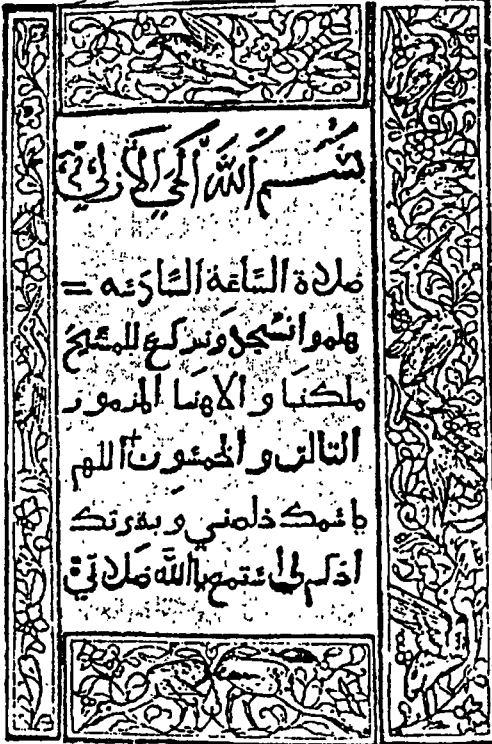 بسم الله الحي الازلي
صلاة الساعة السادسه =
هلموا نسجد ونركع للمسيح
ملكنا والاهنا المزمور
التالت والخمسون اللهم
باسمك خلصني وبقوتك
احكم لي استمع يا الله صلاتي